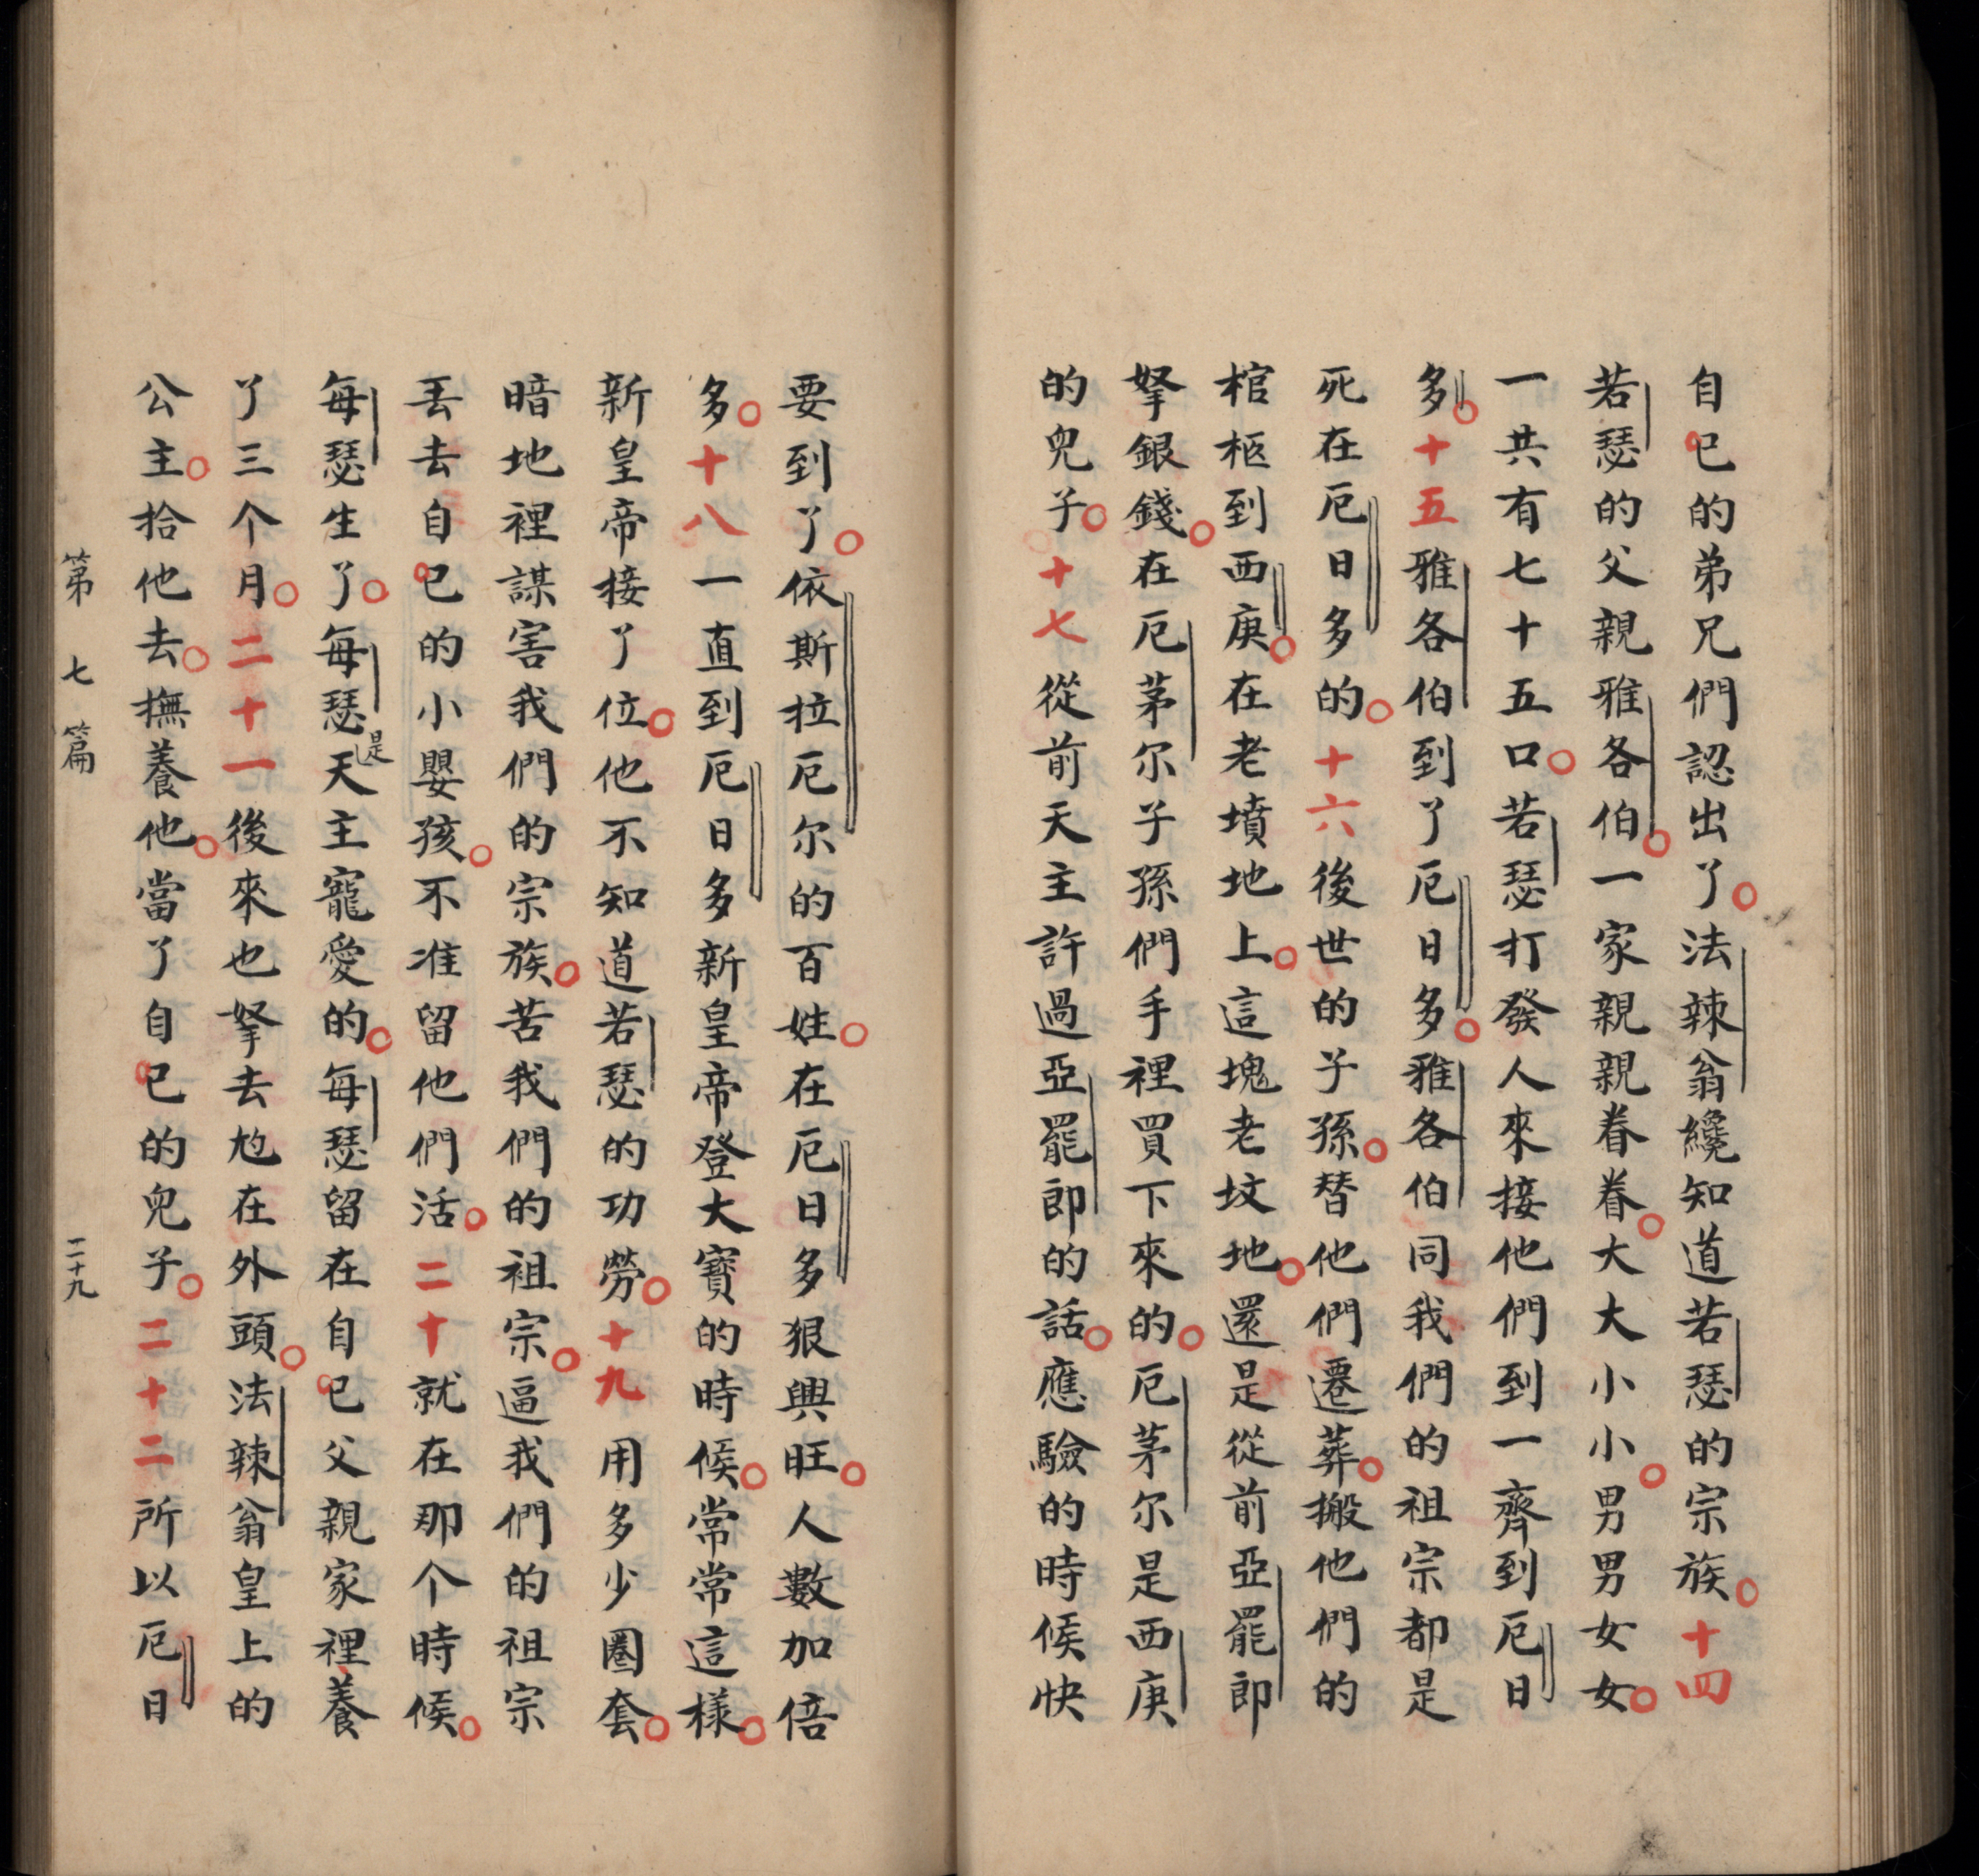 自己的弟兄們認出了。法辣翁纔知道若瑟的宗族。十四
若瑟的父親雅各伯。一家親親眷眷。大大小小。男男女女。
一共有七十五口。若瑟打發人來接他們到一齊到厄日
多。十五雅各伯到了厄日多。雅各伯同我們的祖宗都是
死在厄日多的。十六後世的子孫。替他們遷葬。搬他們的
棺柩到西庚。在老墳地上。這塊老坟地。還是從前亞罷郎
拏銀錢。在厄茅尔子孫們手裡買下來的。厄茅尔是西庚
的兒子。十七從前天主許過亞罷郎的話。應驗的時候快
要到了。依斯拉厄尔的百姓。在厄日多狠興旺。人數加倍
多。十八一直到厄日多新皇帝登大寶的時候。常常這樣。
新皇帝接了位。他不知道若瑟的功勞。十九用多少圈套。
暗地裡謀害我們的宗族。苦我們的祖宗。逼我們的祖宗
丟去自己的小嬰孩。不准留他們活。二十就在那个時候。
每瑟生了。每瑟是天主寵愛的。每瑟留在自己父親家裡養
了三个月。二十一後來也拏去尥在外頭。法辣翁皇上的
公主。拾他去。撫養他。當了自己的兒子。二十二所以厄日
第七篇 二十九